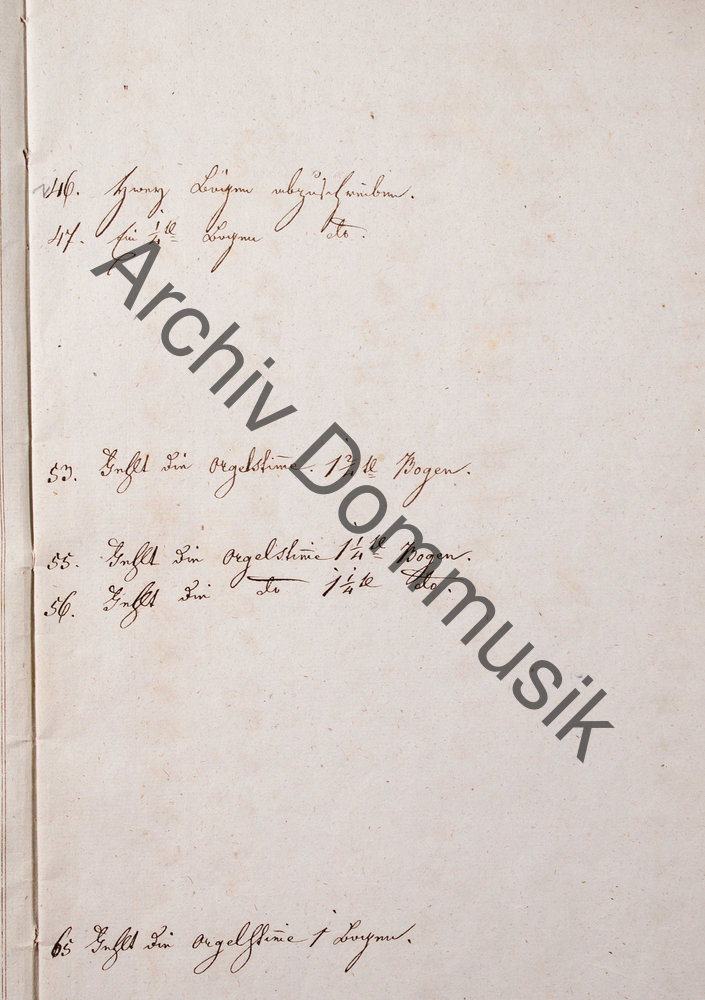 46. Zwey Bögen abzuschreiben.
47. Ein 1/4tl Bogen do.
53. Fehlt die Orgelstim̅e. 1 2/4tl Bogen.
55. Fehlt die Orgelstim̅e 1 1/4tl Bogen.
56. Fehlt die do 1 1/4tl do.
65 Fehlt die Orgelstim̅e 1 Bogen.
Archiv Dommusik